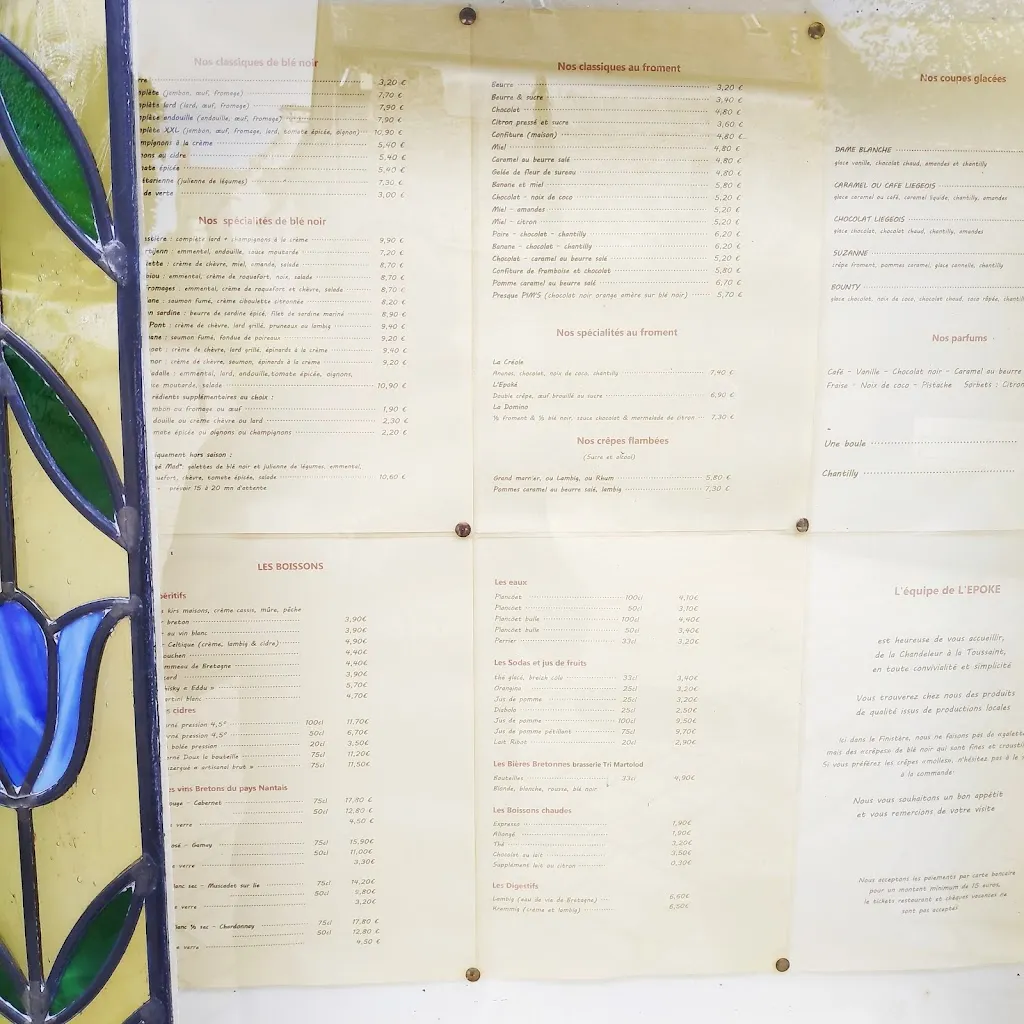 Nos classiques de blé noir
rre 3,20 €
mplète (jambon, œuf, fromage) 7,70 €
mplète lard (lard, œuf, fromage) 7,90 €
mplète andouille (andouille, œuf, fromage) 7,90 €
mplète XXL (jambon, œuf, fromage, lard, tomate épicée, oignon) 10,90 €
mpignons à la crème 5,40 €
nons au cidre 5,40 €
mate épicée 5,40 €
étarienne (julienne de légumes) 7,30 €
de verte 3,00 €
Nos spécialités de blé noir
: complète lard + champignons à la crème 9,90 €
: emmental, andouille, sauce moutarde 7,20 €
lette : crème de chèvre, miel, amande, salade 8,70 €
: emmental, crème de roquefort, noix, salade 8,70 €
romages : emmental, crème de roquefort et chèvre, salade 8,70 €
ane : saumon fumé, crème ciboulette citronnée 8,20 €
n sardine : beurre de sardine épicé, filet de sardine mariné 8,90 €
Pont : crème de chèvre, lard grillé, pruneaux au lambig 9,40 €
ane : saumon fumé, fondue de poireaux 9,20 €
oat : crème de chèvre, lard grillé, épinards à la crème 9,40 €
mor : crème de chèvre, saumon, épinards à la crème 9,20 €
adalle : emmental, lard, andouille, tomate épicée, oignons,
ce moutarde, salade 10,90 €
rédients supplémentaires au choix :
mbon ou fromage ou œuf 1,90 €
douille ou crème chèvre ou lard 2,30 €
mate épicée ou oignons ou champignons 2,20 €
iquement hors saison :
gé Mad": galettes de blé noir et julienne de légumes, emmental,
uefort, chèvre, tomate épicée, salade 10,60 €
prévoir 15 à 20 mn d'attente
Nos classiques au froment
Beurre 3,20 €
Beurre & sucre 3,40 €
Chocolat 4,80 €
Citron pressé et sucre 3,60 €
Confiture (maison) 4,80 €
Miel 4,80 €
Caramel au beurre salé 4,80 €
Gelée de fleur de sureau 4,80 €
Banane et miel 5,80 €
Chocolat - noix de coco 5,20 €
Miel - amandes 5,20 €
Miel - citron 5,20 €
Poire - chocolat - chantilly 6,20 €
Banane - chocolat - chantilly 6,20 €
Chocolat - caramel au beurre salé 5,20 €
Confiture de framboise et chocolat 5,80 €
Pomme caramel au beurre salé 6,70 €
Presque PIM'S (chocolat noir orange amère sur blé noir) 5,70 €
Nos spécialités au froment
La Créole
Ananas, chocolat, noix de coco, chantilly 7,40 €
L'Epoké
Double crêpe, œuf brouillé au sucre 6,90 €
La Domino
½ froment & ½ blé noir, sauce chocolat & marmelade de citron 7,30 €
Nos crêpes flambées
(Sucre et alcool)
Grand marnier, ou Lambig, ou Rhum 5,80 €
Pommes caramel au beurre salé, lambig 7,30 €
Nos coupes glacées
DAME BLANCHE
glace vanille, chocolat chaud, amandes et chantilly
CARAMEL OU CAFE LIEGEOIS
glace caramel ou café, caramel liquide, chantilly, amandes
CHOCOLAT LIEGEOIS
glace chocolat, chocolat chaud, chantilly, amandes
SUZANNE
crêpe froment, pommes caramel, glace cannelle, chantilly
BOUNTY
glace chocolat, noix de coco, chocolat chaud, coco râpée, chantil
Nos parfums
Café - Vanille - Chocolat noir - Caramel au beurre
Fraise - Noix de coco - Pistache Sorbets : Citron
Une boule
Chantilly
LES BOISSONS
péritifs
kirs maisons, crème cassis, mûre, pêche
breton 3,90€
au vin blanc 3,90€
Celtique (crème, lambig & cidre) 4,90€
ouchen 4,40€
mmeau de Bretagne 4,40€
card 3,90€
hisky « Eddu » 5,70€
artini blanc 4,70€
cidres
erné pression 4,5° 100cl 11,70€
erné pression 4,5° 50cl 6,70€
bolée pression 20cl 3,50€
erné Doux la bouteille 75cl 11,20€
« artisanal brut » 75cl 11,50€
es vins Bretons du pays Nantais
ouge - Cabernet 75cl 17,80 €
50cl 12,80 €
verre 4,50 €
osé - Gamay 75cl 15,90€
50cl 11,00€
verre 3,30€
lanc sec - Muscadet sur lie 75cl 14,20€
50cl 9,80€
verre 3,20€
lanc ½ sec - Chardonnay 75cl 17,80 €
50cl 12,80 €
verre 4,50 €
Les eaux
Plancoët 100cl 4,10€
Plancoët 50cl 3,10€
Plancoët bulle 100cl 4,40€
Plancoët bulle 50cl 3,40€
Perrier 33cl 3,20€
Les Sodas et jus de fruits
thé glacé, breizh cola 33cl 3,40€
Orangina 25cl 3,20€
Jus de pomme 25cl 3,20€
Diabolo 25cl 2,50€
Jus de pomme 100cl 9,50€
Jus de pomme pétillant 75cl 9,70€
Lait Ribot 20cl 2,90€
Les Bières Bretonnes brasserie Tri Martolod
Bouteilles 33cl 4,90€
Blonde, blanche, rousse, blé noir
Les Boissons chaudes
Expresso 1,90€
Allongé 1,90€
Thé 3,20€
Chocolat au lait 3,50€
Supplément lait ou citron 0,30€
Les Digestifs
Lambig (eau de vie de Bretagne) 6,60€
Krammig (crème et lambig) 6,50€
L'équipe de L'EPOKE
est heureuse de vous accueillir,
de la Chandeleur à la Toussaint,
en toute convivialité et simplicité
Vous trouverez chez nous des produits
de qualité issus de productions locales
Ici dans le Finistère, nous ne faisons pas de «galett
mais des «crêpes» de blé noir qui sont fines et crousti
Si vous préférez les crêpes «molles», n'hésitez pas à le
à la commande!
Nous vous souhaitons un bon appétit
et vous remercions de votre visite
Nous acceptons les paiements par carte bancaire
pour un montant minimum de 15 euros,
le tickets restaurant et chèques vacances ne
sont pas acceptés